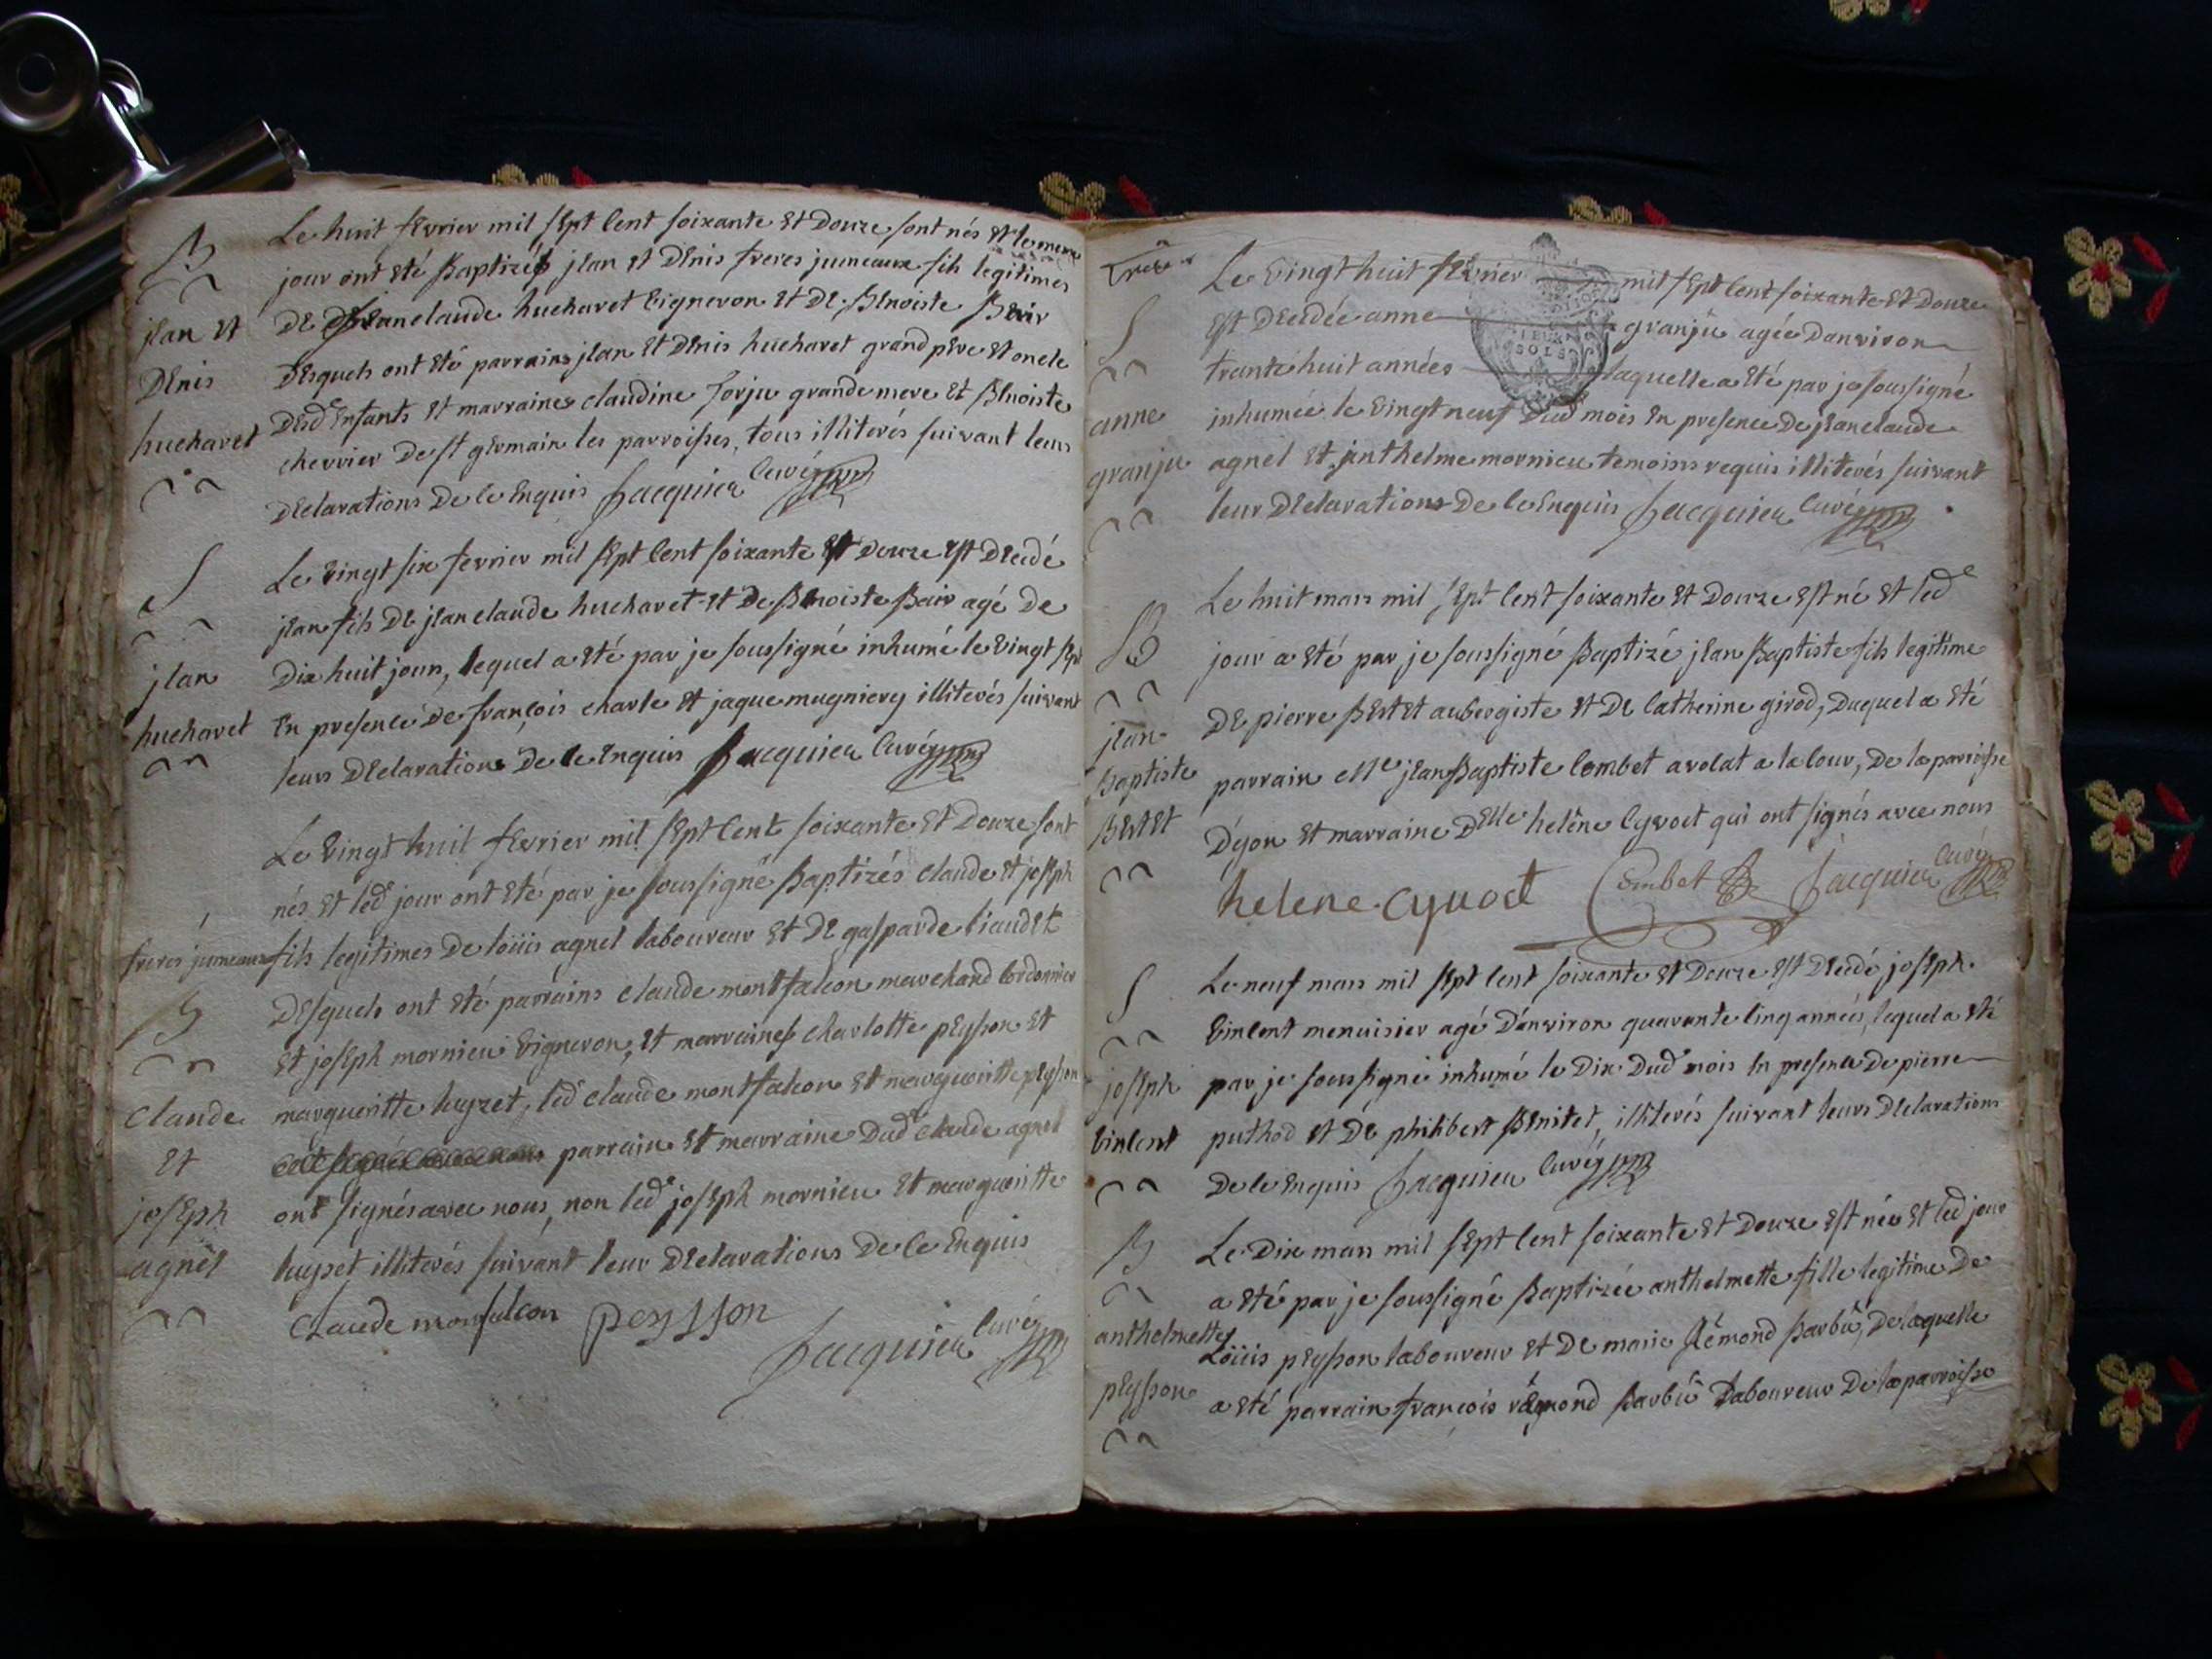 B
jean et
Denis
hucharet
Le huit fevrier mil sept cent soixante et douze sont nés et le meme
jour ont eté Baptizés jean et Denis freres jumeaux fils legitimes
de jean claude hucharet vigneron et de Benoiste Bair
desquels ont eté parrains jean et Denis hucharet grand pere et oncle
desd enfants et marraines claudine Forju grande mere et Benoiste
cherrier de st germain les parroisses, tous illiterés suivant leurs
declarations de ce enquis jacquier curé
S
jean
hucharet
Le vingt six fevrier mil sept cent soixante et douze est decedé
jean fils de jean claude hucharet et de Benoiste Bair agé de
dix huit jours, lequel a eté par je soussigné inhumé le vingt sept
en presence de françois charle et jaque mugniery illiterés suivant
leurs declarations de ce enquis jacquier curé
freres jumeaux
B
claude
et
joseph
agnel
Le vingt huit fevrier mil sept cent soixante et douze sont
nés et led jour ont eté par je soussigné Baptizés claude et joseph
fils legitimes de loüis agnel laboureur et de gasparde liaudet
desquels ont eté parrains claude montfalcon marchand cordonnier
et joseph mornieu vigneron, et marraines charlotte peysson et
margueritte huyzet, led claude montfalcon et margueritte peysson
parrain et marraine dud claude agnel
ont signés avec nous, non led joseph mornieu et margueritte
huyset illiterés suivant leur declarations de ce enquis
Claude monfalcon peysson
jacquier curé
treize
S
anne
granju
Le vingt huit fevrier mil sept cent soixante et douze
est decedée anne granju agée danviron
trante huit années laquelle a eté par je soussigné
inhumée le vingt neuf dud mois en presence de jean claude
agnel et anthelme mornieu temoins requis illiterés suivant
leur declarations de ce enquis jacquier curé
B
jean
Baptiste
Bertet
Le huit mars mil sept cent soixante et douze est né et led
jour a eté par je soussigné Baptizé jean Baptiste fils legitime
de pierre Bertet aubergiste et de catherine girod, duquel a eté
parrain Me jean Baptiste Combet avocat a la cour, de la parroisse
d'yon et marraine delle helêne Cyvoct qui ont signés avec nous
helene Cyvoct Combet jacquier curé
S
joseph
vincent
Le neuf mars mil sept cent soixante et douze est decedé joseph
vincent menuisier agé d'anviron quarante cinq années, lequel a eté
par je soussigné inhumé le dix dud mois en presence de pierre
puthod et de philibert Benitet, illiterés suivant leurs declarations
de ce enquis jacquier curé
B
anthelmette
peysson
Le dix mars mil sept cent soixante et douze est née et led jour
a eté par je soussigné Baptizée anthelmette fille legitime de
Loüis peysson laboureur et de marie Rémond Barbû, de laquelle
a eté parrain françois rémond Barbû laboureur de la parroisse